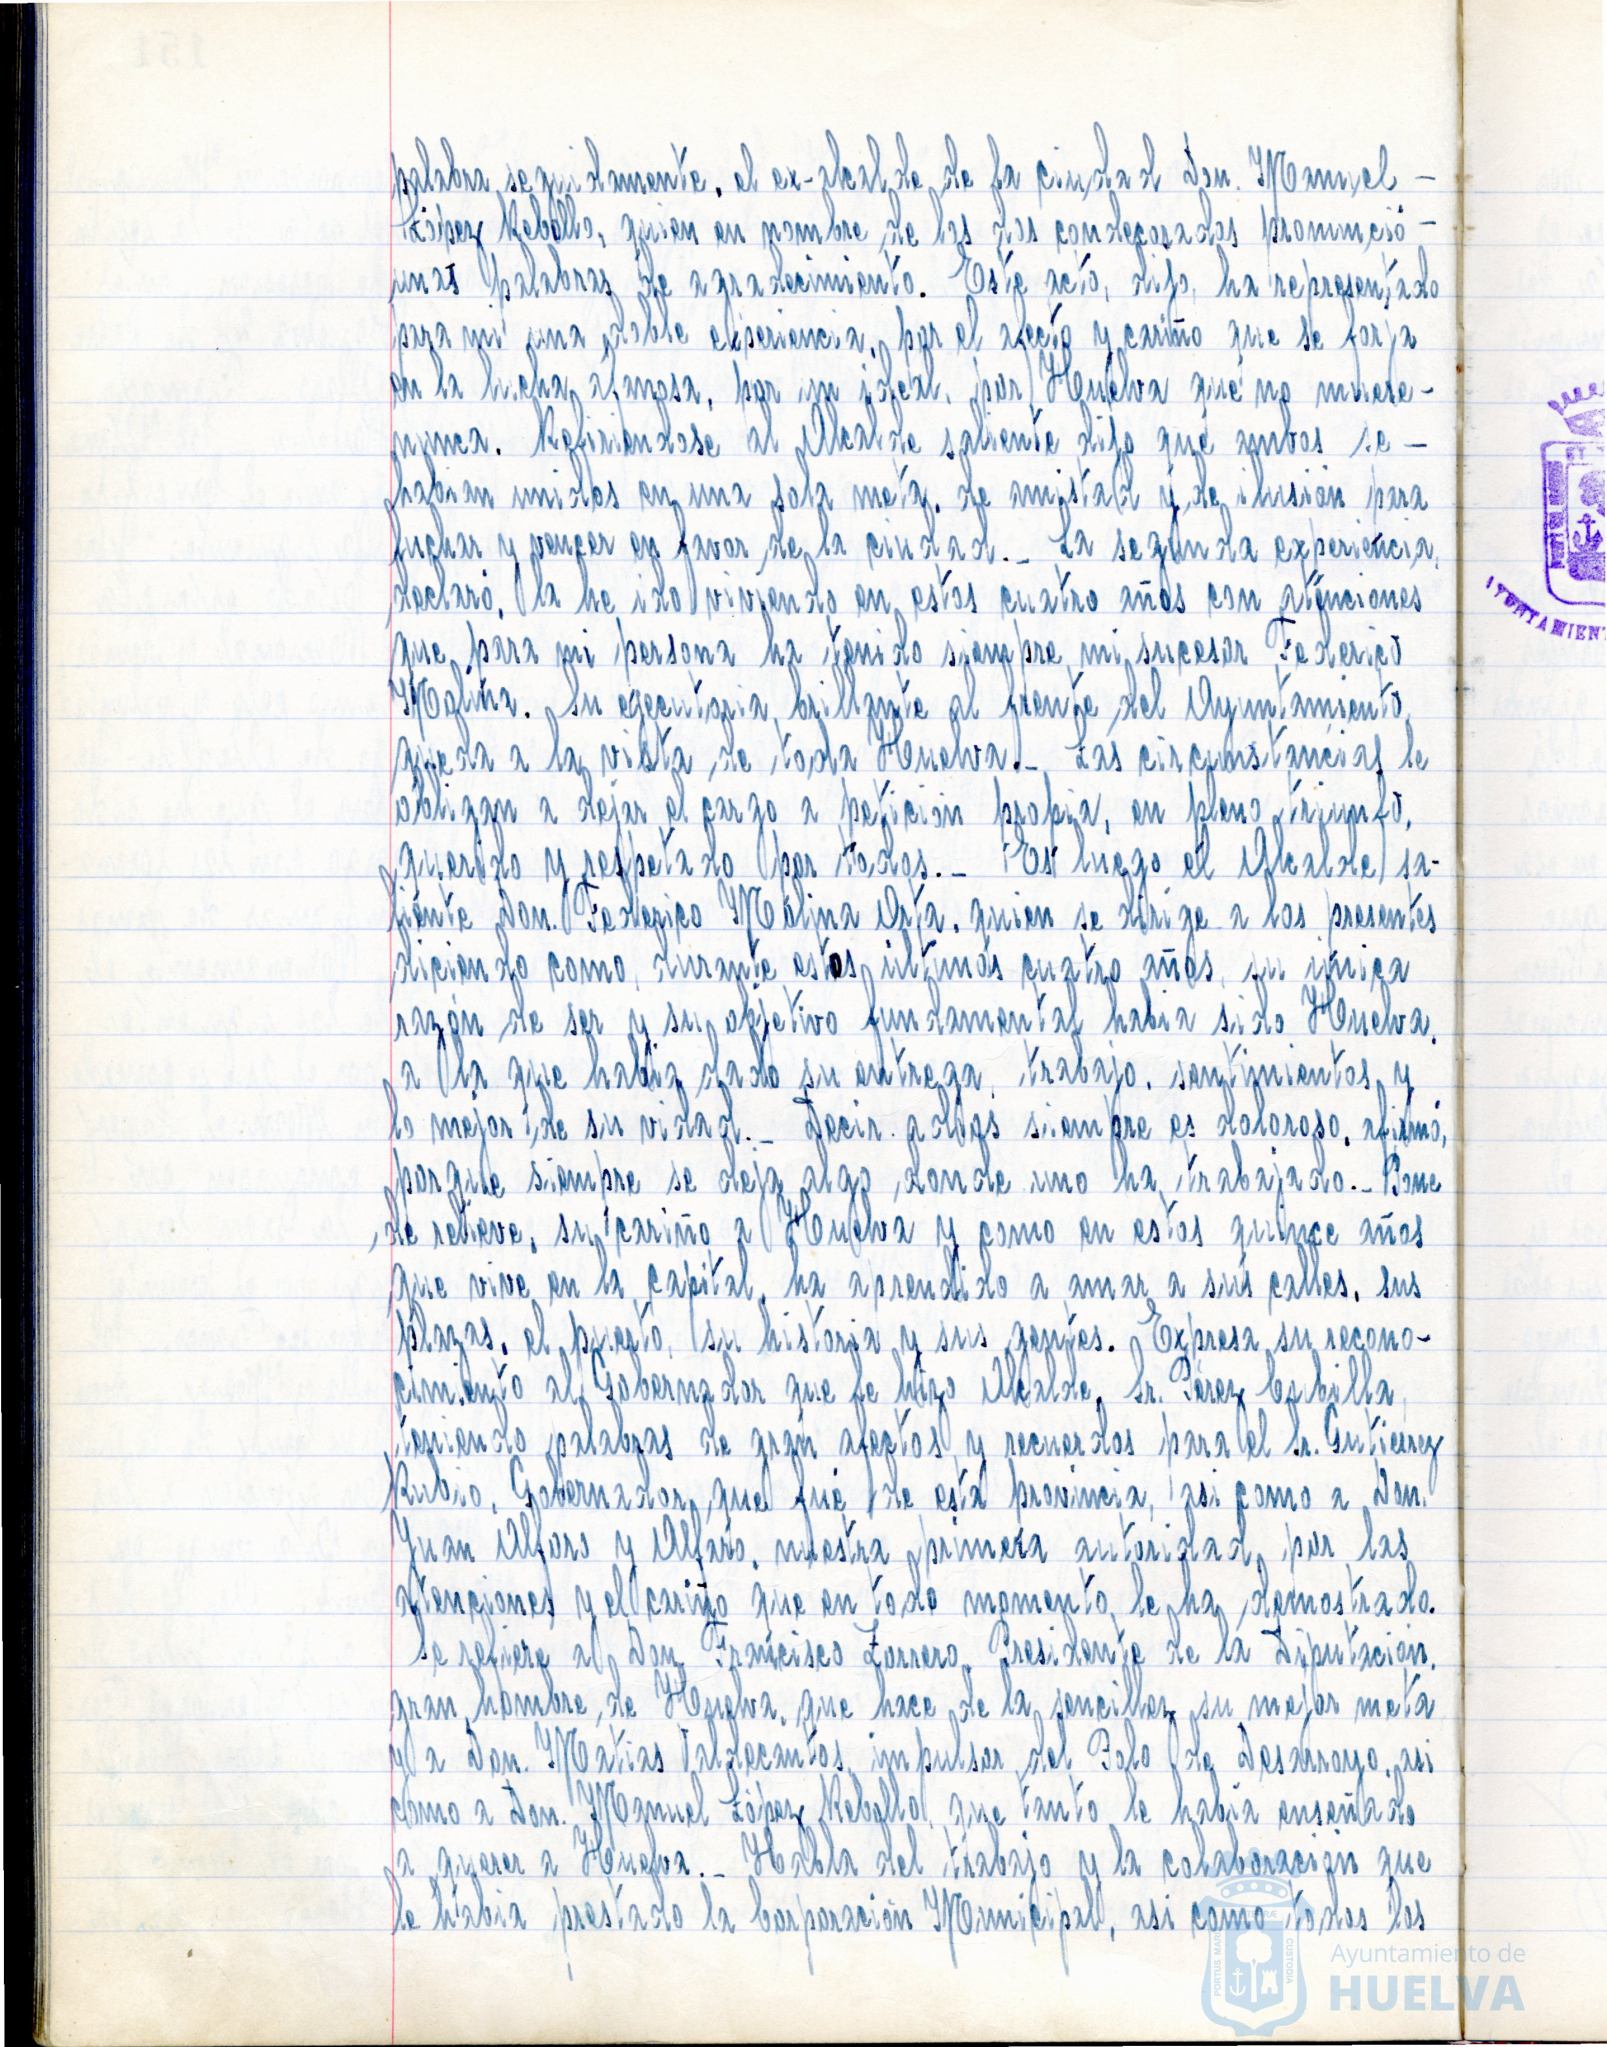 palabra seguidamente, el ex-alcalde de la ciudad Don. Manuel -
López Rebollo, quien en nombre de los dos condecorados pronunció -
unas palabras de agradecimiento. Este acto, dijo, ha representado
para mi una doble experiencia, por el afecto y cariño que se forja
en la lucha afanosa, por un ideal, por Huelva que no muere -
nunca. Refiriendose al Alcalde saliente dijo que ambos se -
habian unidos en una sola meta, de amistad y de ilusión para
luchar y vencer en favor de la ciudad.- La segunda experiencia,
declaró, la he ido viviendo en estos cuatro años con atenciones
que para mi persona ha tenido siempre mi sucesor Federico
Molina. Su egecutoria, brillante al frente del Ayuntamiento,
queda a la vista de toda Huelva.- Las circunstancias le
obligan a dejar el cargo a petición propia, en pleno triunfo,
querido y respetado por todos.- Es luego el Alcalde sa-
liente Don. Federico Molina Orta, quien se dirige a los presentes
diciendo como, durante estos últimos cuatro años, su única
razón de ser y su objetivo fundamental habia sido Huelva,
a la que habia dado su entrega, trabajo, sentimientos y
lo mejor de su vidad.- Decir adoas siempre es doloroso, afirmó,
porque siempre se deja algo donde uno ha trabajado.- Pone
de relieve, su cariño a Huelva y como en estos quince años
que vive en la capital, ha aprendido a amar a sus calles, sus
plazas, el puerto, su historia y sus gentes. Expresa su recono-
cimiento al Gobernador que le hizo Alcalde, Sr. Pérez Cubilla,
teniendo palabras de gran afectos y recuerdos para el Sr. Gutiérrez
Rubio, Gobernador que fué de esta provincia, asi como a Don.
Juan Alfaro y Alfaro, nuestra primera autoridad, por las
atenciones y el cariño que en todo momento le ha demostrado.
Se refiere a Don Francisco Zorrero, Presidente de la Diputación,
gran hombre de Huelva, que hace de la sencillez su mejor meta
y a Don. Matias Valdecantos, impulsor del Polo de Desarroyo, asi
como a Don. Manuel López Rebollo que tanto le habia enseñado
a querer a Huelva.- Habla del trabajo y la colaboración que
le habia prestado la Corporación Municipal, asi como todos los
AYUNTAMIENT
PORTUS MARIS
CUSTODIA
Ayuntamiento de
HUELVA